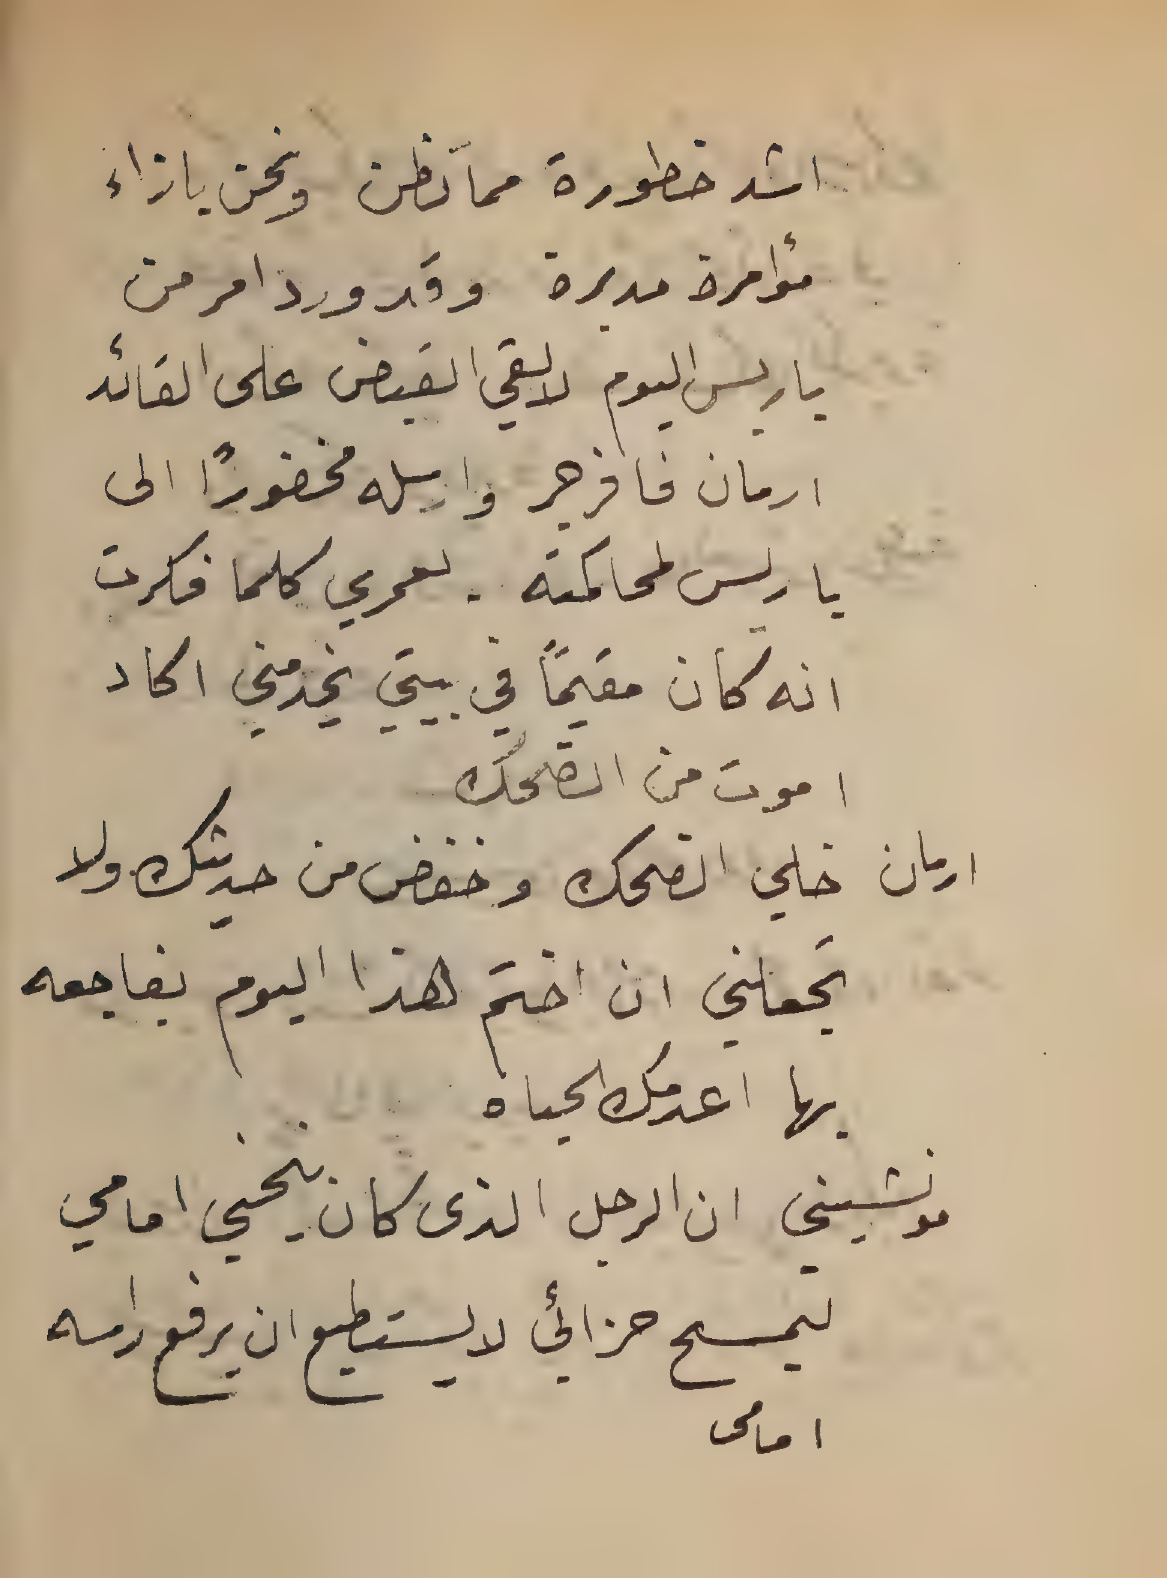 اشد خطورة مما تظن ونحن بازاء
مؤامرة مدبرة وقد ورد امر من
باريس اليوم لالقي القبض على القائد
ارمان فافرجر وارسله مخفورًا الى
باريس لمحاكمته . لعمري كلما فكرت
انه كان مقيمًا في بيتي يخدمني اكاد
اموت من الضحك
ارمان خلي الضحك وخفض من حديثك ولا
تجعلني ان اختم هذا اليوم بفاجعه
بها اعدمك الحياه
مونشيني ان الرجل الذى كان ينحني امامي
ليمسح حزائي لا يستطيع ان يرفع راسه
امامى